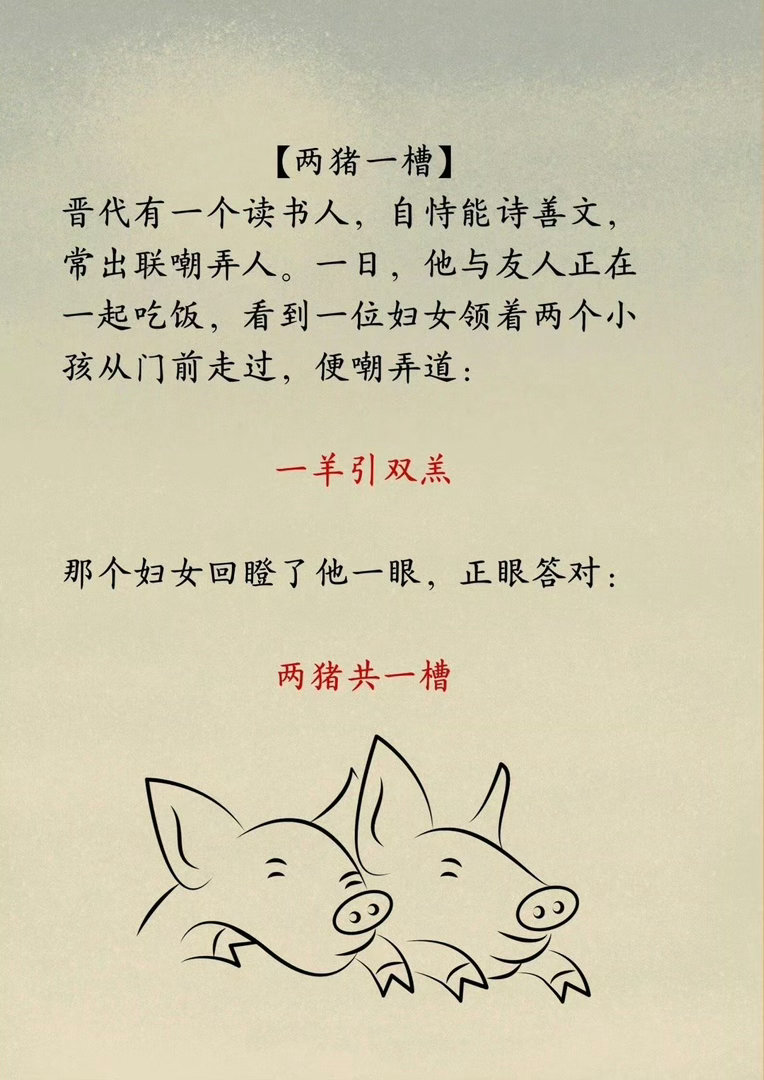 【两猪一槽】
晋代有一个读书人，自恃能诗善文，
常出联嘲弄人。一日，他与友人正在
一起吃饭，看到一位妇女领着两个小
孩从门前走过，便嘲弄道：
一羊引双羔
那个妇女回瞪了他一眼，正眼答对：
两猪共一槽